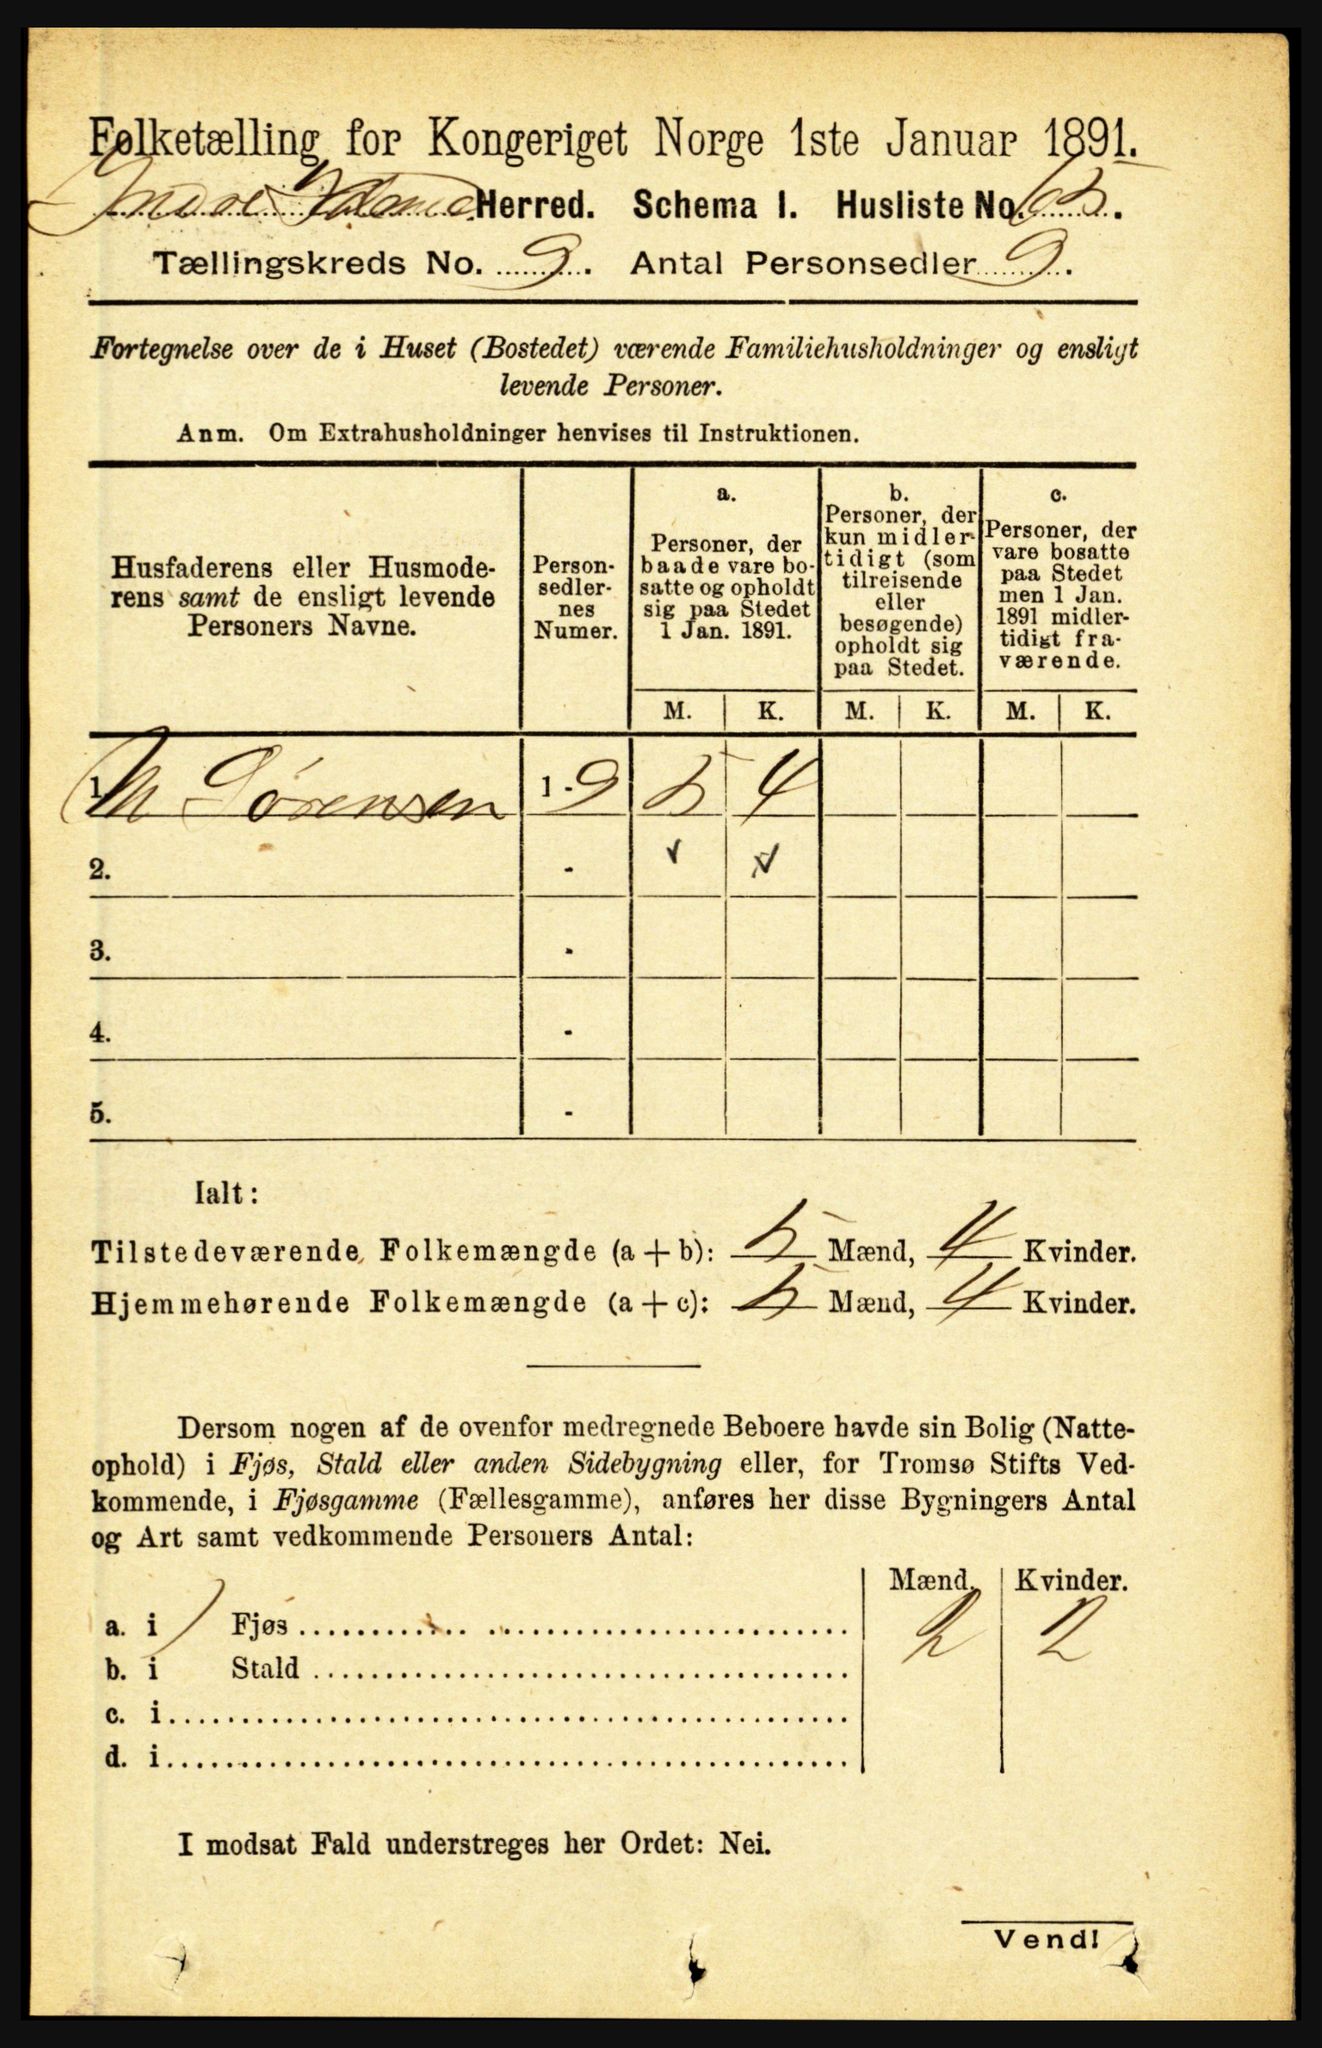 Folketælling for Kongeriget Norge 1ste Januar 1891.
Indre Holmedal Herred. Schema I. Husliste No. .
Tællingskreds No. 9. Antal Personsedler 9.
Fortegnelse over de i Huset (Bostedet) værende Familiehusholdninger og ensligt
levende Personer.
Anm. Om Extrahusholdninger henvises til Instruktionen.
Husfaderens eller Husmode-
rens samt de ensligt levende
Personers Navne.
Person-
sedler-
nes
Numer.
a.
Personer, der
baade vare bo-
satte og opholdt
sig paa Stedet
1 Jan. 1891.
b.
Personer, der
kun midler-
tidigt (som
tilreisende
eller
besøgende)
opholdt sig
paa Stedet.
c.
Personer, der
vare bosatte
paa Stedet
men 1 Jan.
1891 midler-
tidigt fra-
værende.
M. K. M. K. M. K.
1. M Sørensen 1 - 9 5 4
2. - ✓ ✓
3. -
4. -
5. -
Ialt:
Tilstedeværende Folkemængde (a + b): 5 Mænd, 4 Kvinder.
Hjemmehørende Folkemængde (a + c): 5 Mænd, 4 Kvinder.
Dersom nogen af de ovenfor medregnede Beboere havde sin Bolig (Natte-
ophold) i Fjøs, Stald eller anden Sidebygning eller, for Tromsø Stifts Ved-
kommende, i Fjøsgamme (Fællesgamme), anføres her disse Bygningers Antal
og Art samt vedkommende Personers Antal:
Mænd. Kvinder.
a. i 1 Fjøs 2 2
b. i Stald
c. i
d. i
I modsat Fald understreges her Ordet: Nei.
Vend!